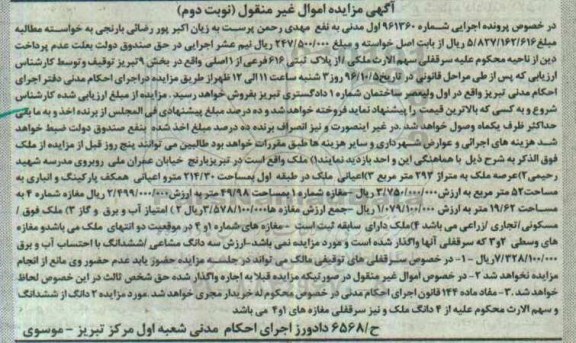 آگهی مزایده اموال غیر منقول (نوبت دوم)
در خصوص پرونده اجرایی شماره ۹۶۱۳۶۰ اول مدنی به نفع مهدی رحمن پرست به زیان اکبر پور رضائی بارنجی به خواسته مطالبه
مبلغ ۵/۸۲۷/۱۶۲/۶۱۶ ریال از بابت اصل خواسته و مبلغ ۲۴۷/۵۰۰/۰۰۰ ریال نیم عشر اجرایی در حق صندوق دولت بعلت عدم پرداخت
دین از ناحیه محکوم علیه سرقفلی سهم الارث ملکی از پلاک ثبتی ۶۱۶ فرعی از ۱ اصلی واقع در بخش ۹ تبریز توقیف و توسط کارشناس
ارزیابی که پس از طی مراحل قانونی در تاریخ ۹۶/۱۰/۵ روز ۳ شنبه ساعت ۱۱ الی ۱۲ ظهر از طریق مزایده در اجرای احکام مدنی دفتر اجرای
احکام مدنی تبریز واقع در اول ولیعصر ساختمان شماره ۱ دادگستری تبریز بفروش خواهد رسید . مزایده از مبلغ ارزیابی شده کارشناس
شروع و به کسی که بالاترین قیمت را پیشنهاد نماید فروخته خواهد شد و ده درصد مبلغ پیشنهادی فی المجلس از برنده اخذ و مابقی
حداکثر ظرف یکماه وصول خواهد شد . در غیر اینصورت و نیز انصراف برنده ده درصد مبلغ اخذ شده بنفع صندوق دولت ضبط خواهد
شد هزینه های اجرائی و عوارض شهرداری و سایر هزینه ها طبق مقررات خواهد بود طالبین می توانند پنج روز قبل از مزایده از ملک
فوق الذکر به شرح ذیل با هماهنگی این واحد بازدید نمایند ۱) ملک واقع است در تبریز بارنج خیابان عمران ملی روبروی مدرسه شهید
رحیمی ۲) عرصه ملک به متراژ ۲۹۲ متر مربع ۳) اعیانی ملک در طبقه اول بمساحت ۲۱۴/۳۰ مترو اعیانی همکف پارکینگ و انباری به
مساحت ۵۲ متر مربع به ارزش ۳/۷۵۰/۰۰۰/۰۰۰ ریال - مغازه شماره ۱ بمساحت ۴۹/۹۸ متر به ارزش ۲/۴۹۹/۰۰۰/۰۰۰ ریال مغازه شماره ۴ به
مساحت ۱۹/۶۲ متر به ارزش ۱/۰۷۹/۱۰۰/۰۰۰ ریال - جمع ارزش مغازه ها ۳/۵۷۸/۱۰۰/۰۰۰ ریال ۲) امتیاز آب و برق و گاز ۳) ملک فوق /
مسکونی/تجاری /زراعی می باشد ۴) ملک دارای سابقه ثبت است - مغازه های شماره ۱و ۴ در موقعیت دو انتهای ملک می باشدو مغازه
های وسطی ۲و ۳ که سرقفلی آنها واگذار شده است و مورد مزایده نمی باشد-ارزش سه دانگ مشاعی /ششدانگ با احتساب آب و برق
۷/۳۲۸/۱۰۰/۰۰۰ریال -۱- در خصوص سرقفلی های توقیفی مالک می تواند در جلسه مزایده حضور یابد عدم حضور وی مانع از انجام
مزایده نخواهد شد ۲- در خصوص اموال غیر منقول در صورتیکه مزایده قبلا به اجاره واگذار شده حق شخص ثالث در این خصوص لحاظ
خواهد شد .۳- مفاد ماده ۱۴۴ قانون اجرای احکام مدنی در خصوص محکوم له خریدار مجری خواهد شد. مورد مزایده ۲ دانگ از ششدانگ
و سهم الارث محکوم علیه از ۴ دانگ ملک و نیز سرقفلی مغازه های ۱و۴ می باشد
ح/۶۵۶۸ دادورز اجرای احکام مدنی شعبه اول مرکز تبریز - موسوی